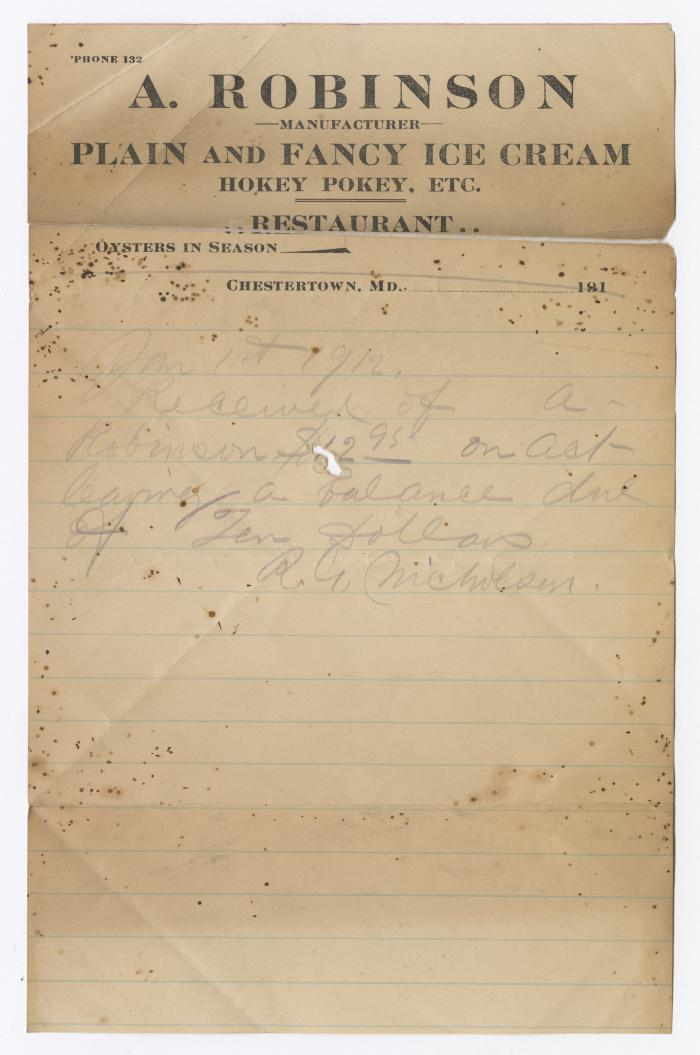 'PHONE 132
A. ROBINSON
MANUFACTURER
PLAIN AND FANCY ICE CREAM
HOKEY POKEY, ETC.
..RESTAURANT..
OYSTERS IN SEASON
CHESTERTOWN, MD., 191
Jan 1st 1912,
Received of A-
Robinson $12 95 on act
leaving a balance due
of Ten Dollars.
R. G. Nicholson.